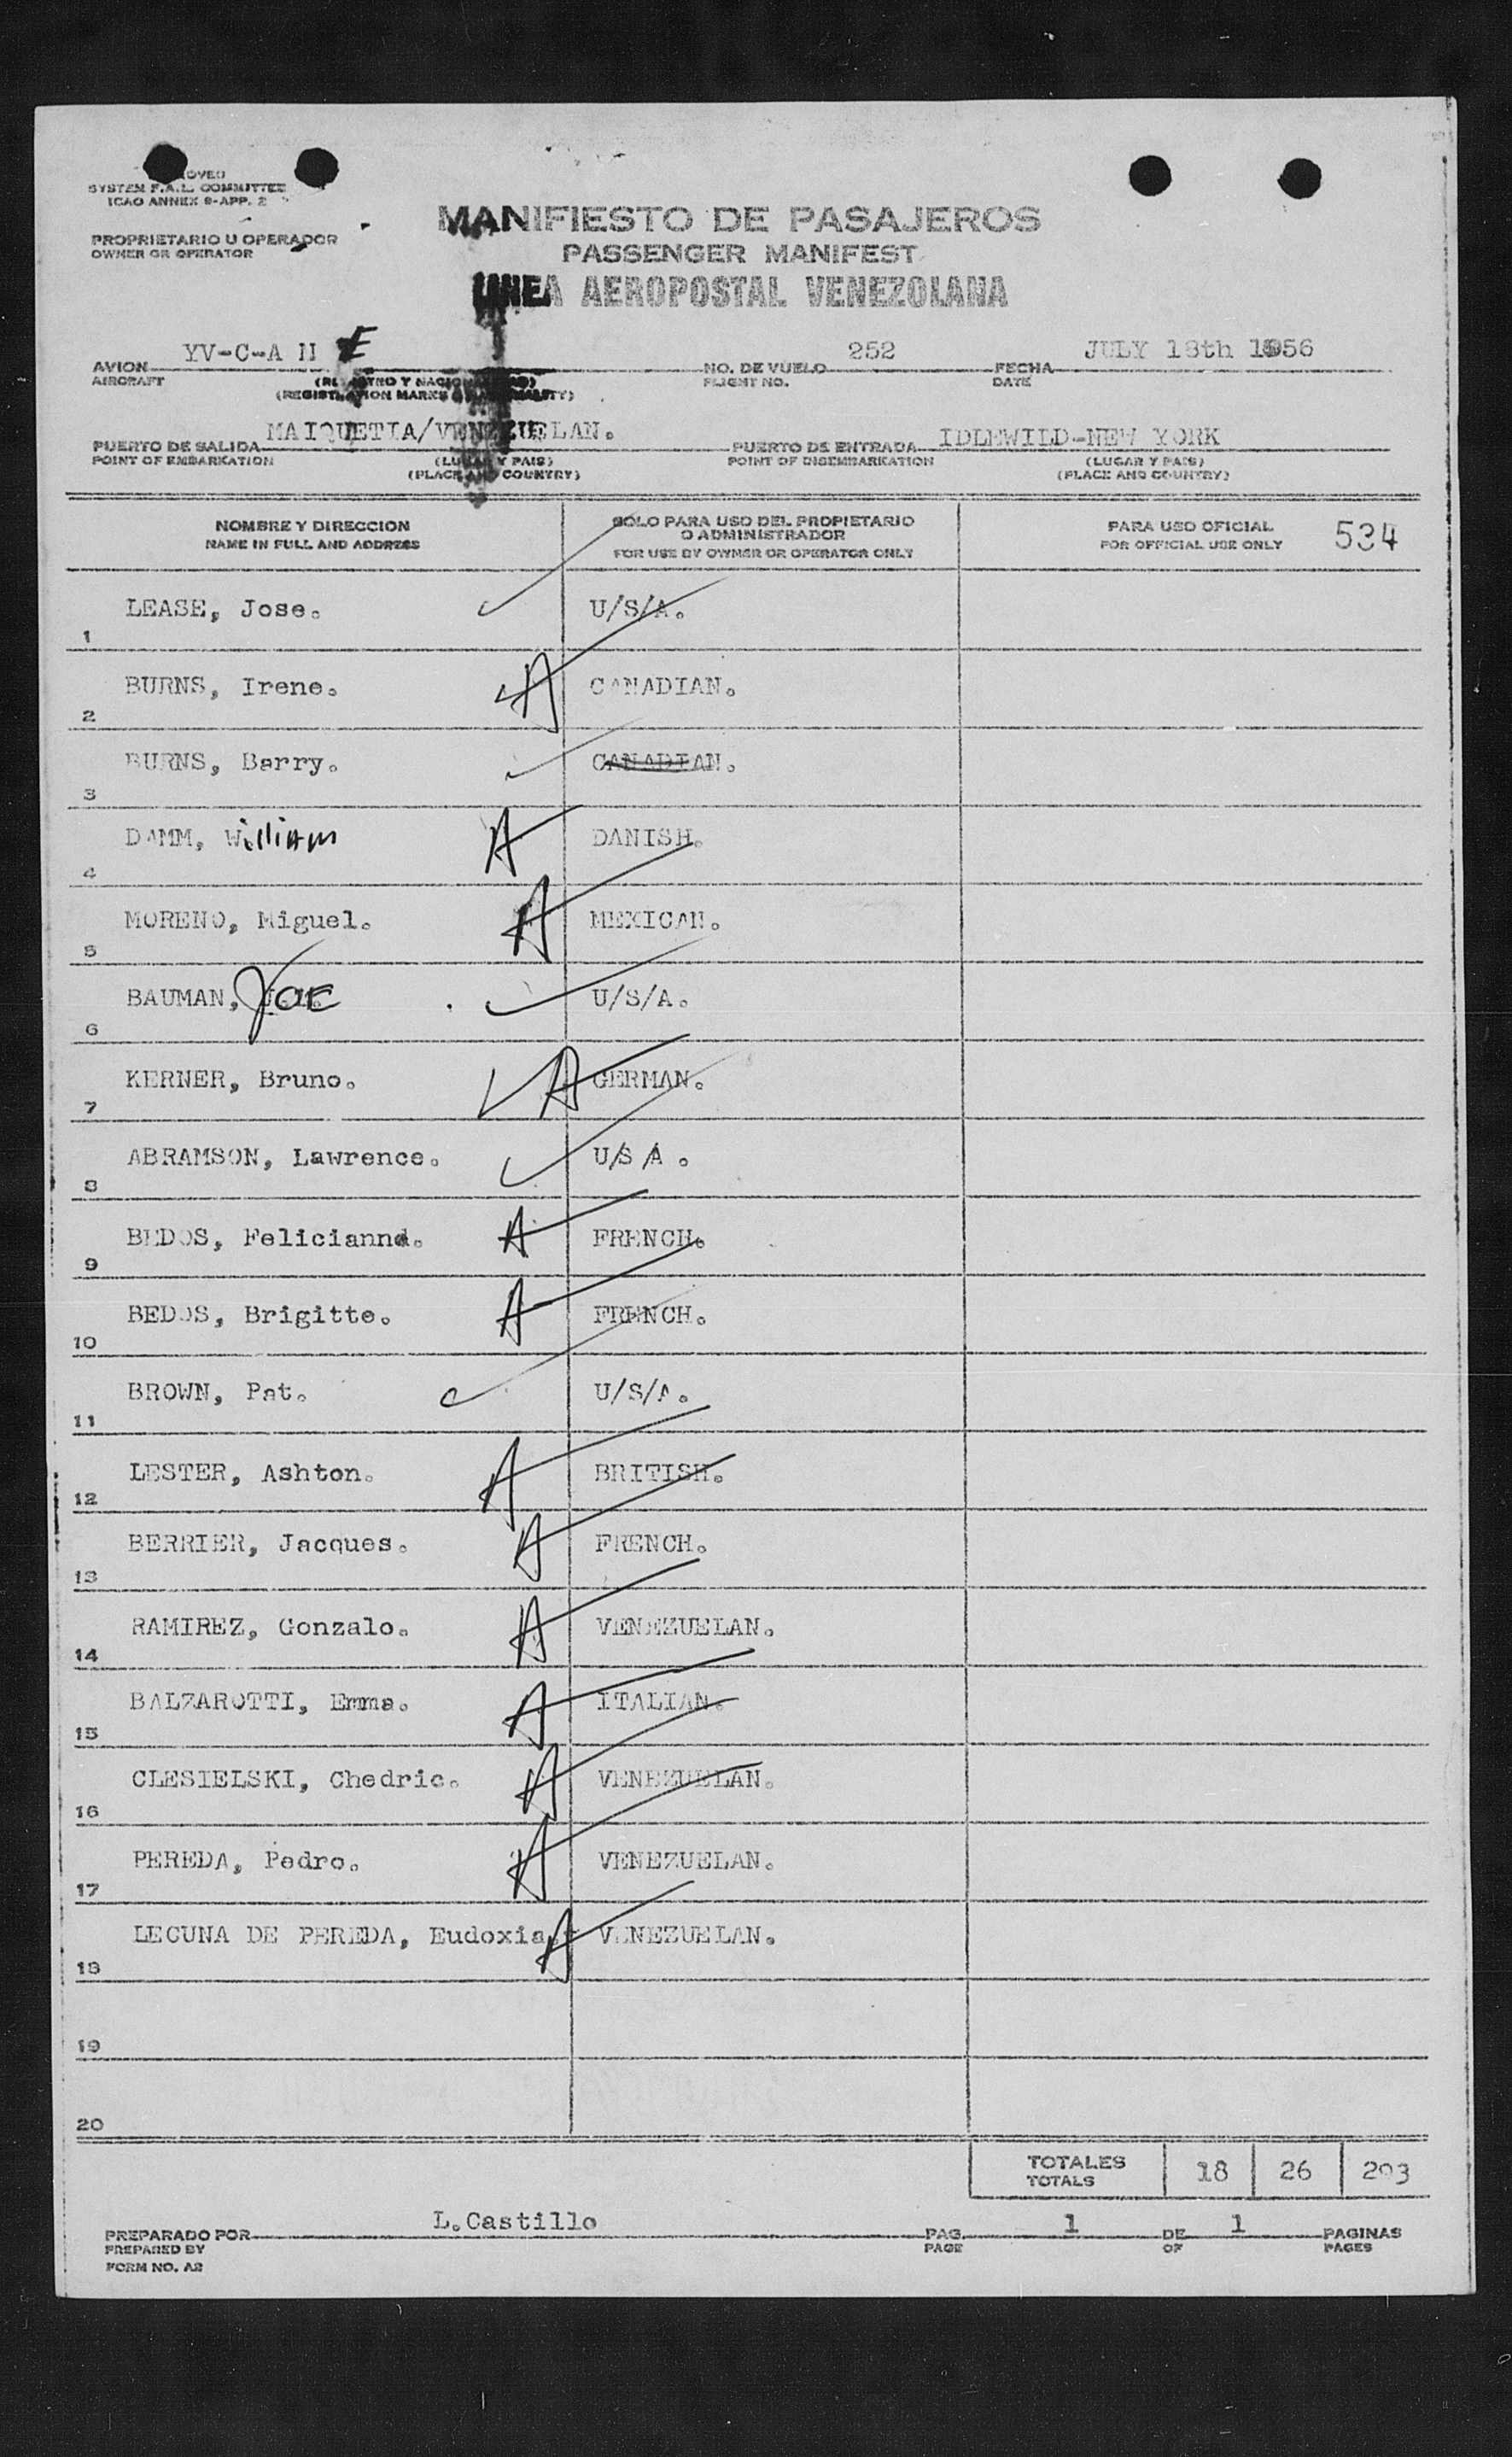 SYSTEM F.A.L. COMMITTEE
ICAO ANNEX 9-APP. 2
PROPRIETARIO U OPERADOR
OWNER OR OPERATOR
MANIFIESTO DE PASAJEROS
PASSENGER MANIFEST
LINEA AEROPOSTAL VENEZOLANA
AVION YV-C-A N E NO. DE VUELO 252 FECHA JULY 18th 1956
AIRCRAFT FLIGHT NO. DATE
(REGISTRO Y NACIONALIDAD)
(REGISTRATION MARKS & NATIONALITY)
PUERTO DE SALIDA MAIQUETIA/VENEZUELAN. PUERTO DE ENTRADA IDLEWILD-NEW YORK
POINT OF EMBARKATION (LUGAR Y PAIS) POINT OF DISEMBARKATION (LUGAR Y PAIS)
(PLACE AND COUNTRY) (PLACE AND COUNTRY)
NOMBRE Y DIRECCION
NAME IN FULL AND ADDRESS
SOLO PARA USO DEL PROPIETARIO
O ADMINISTRADOR
FOR USE BY OWNER OR OPERATOR ONLY
PARA USO OFICIAL
FOR OFFICIAL USE ONLY
534
1 LEASE, Jose. U/S/A.
2 BURNS, Irene. A CANADIAN.
3 BURNS, Barry. CANADIAN.
4 DAMM, William A DANISH.
5 MORENO, Miguel. A MEXICAN.
6 BAUMAN, JOE U/S/A.
7 KERNER, Bruno. A GERMAN.
8 ABRAMSON, Lawrence. U/S/A.
9 BEDOS, Felicianna. A FRENCH.
10 BEDOS, Brigitte. A FRENCH.
11 BROWN, Pat. U/S/A.
12 LESTER, Ashton. A BRITISH.
13 BERRIER, Jacques. A FRENCH.
14 RAMIREZ, Gonzalo. A VENEZUELAN.
15 BALZAROTTI, Emma. A ITALIAN.
16 CLESIELSKI, Chedric. A VENEZUELAN.
17 PEREDA, Pedro. A VENEZUELAN.
18 LECUNA DE PEREDA, Eudoxia. A VENEZUELAN.
19
20
TOTALES 18 26 203
TOTALS
PREPARADO POR L.Castillo PAG. 1 DE 1 PAGINAS
PREPARED BY PAGE OF PAGES
FORM NO. A2